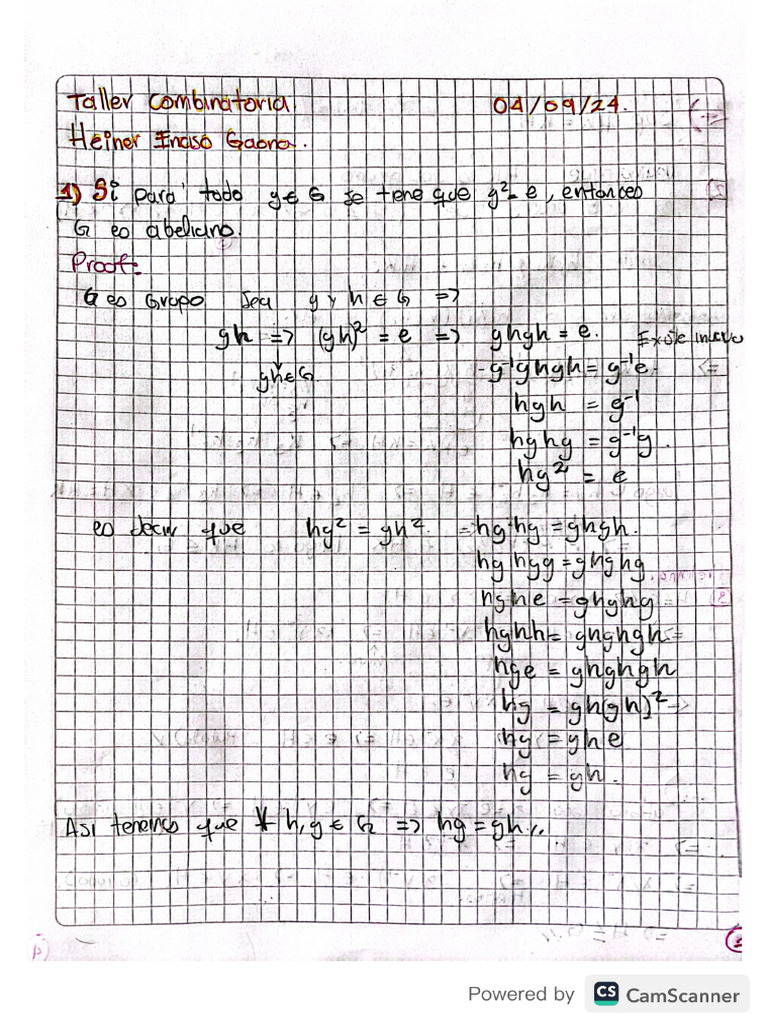 Taller Combinatoria. 04/09/24.
Heiner Gaona.
1) Si para todo g ∈ G se tiene que g² = e, entonces
G es abeliano.
Proof:
G es Grupo Sea g y h ∈ G =>
gh => (gh)² = e => ghgh = e. Existe inverso
gh ∈ G. g⁻¹ghgh = g⁻¹e <=
hgh = g⁻¹
hghg = g⁻¹g.
hg² = e
es decir que hg² = gh². => hghg = ghgh.
hghgg = ghghg
hghe = ghghg
hghh = ghghgh
hge = ghghgh
hg = gh(gh)²
hg = ghe
hg = gh.
Asi tenemos que ∀ h, g ∈ G => hg = gh
Powered by CS CamScanner